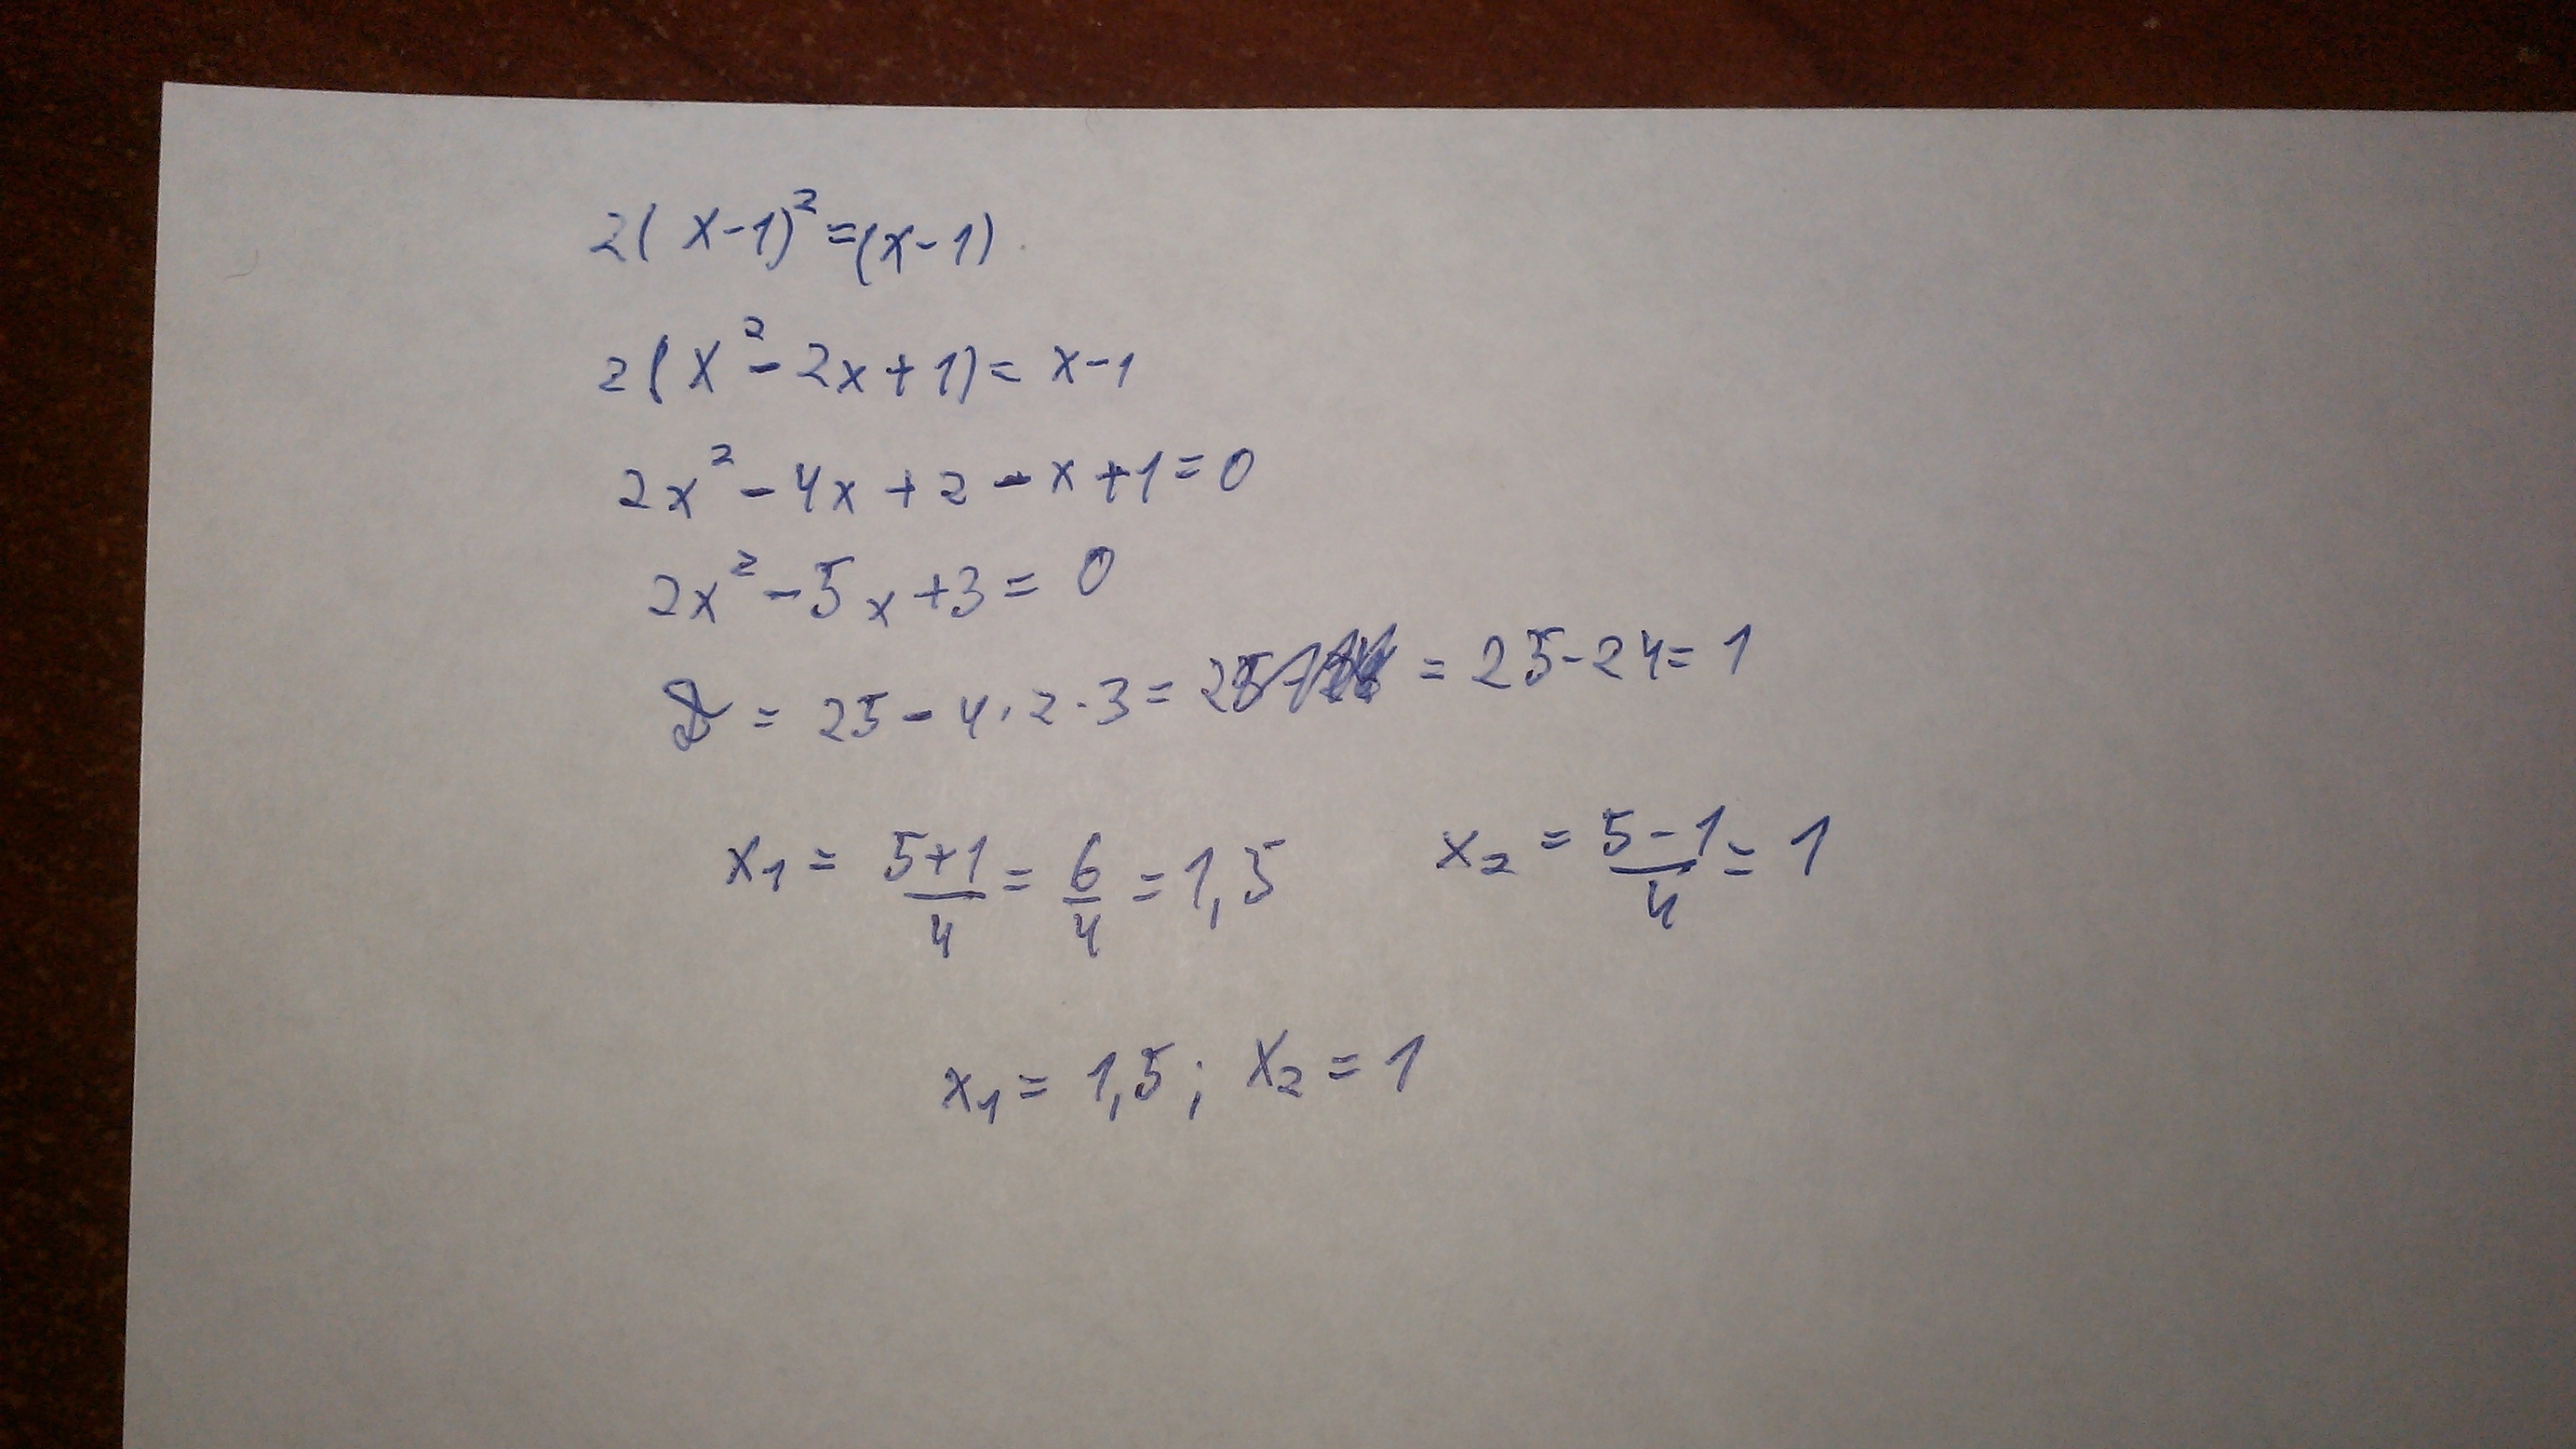 2(x-1)²=(x-1)
2(x²-2x+1)=x-1
2x²-4x+2-x+1=0
2x²-5x+3=0
D=25-4·2·3= =25-24=1
x₁=5+1/4=6/4=1,5 x₂=5-1/4=1
x₁=1,5; x₂=1